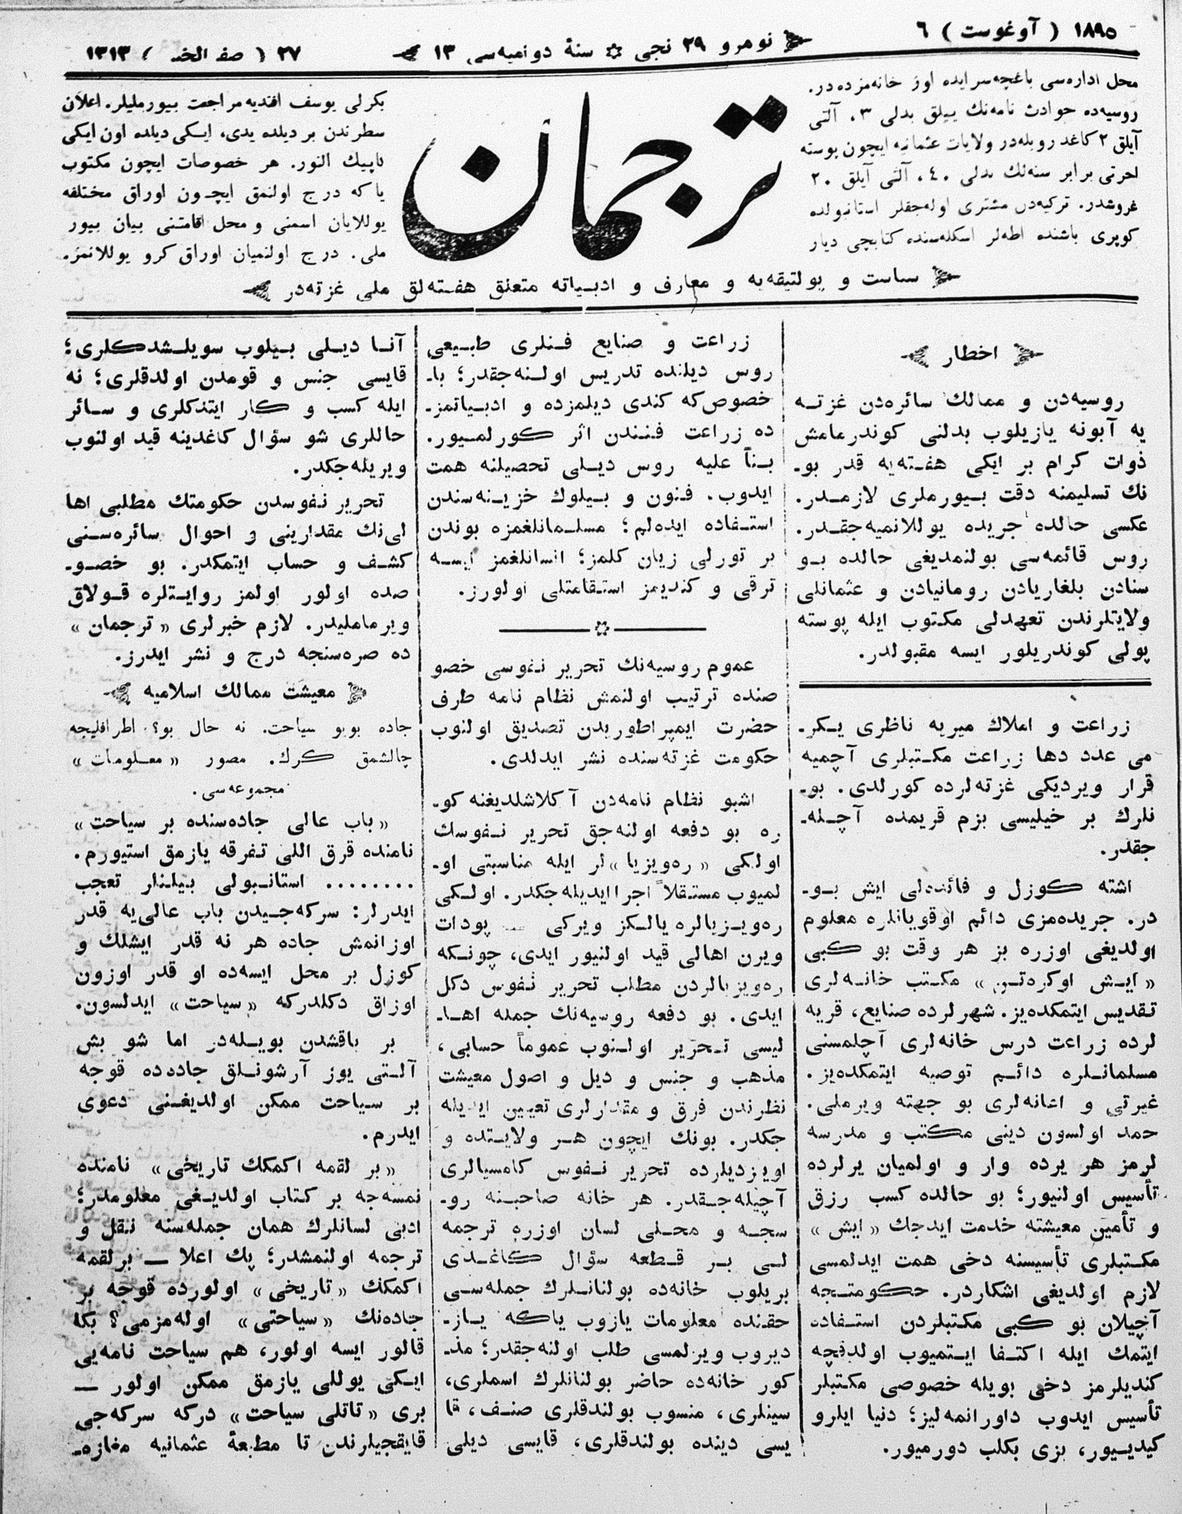 ١٨٩٥ ( آوغوست ) ٦
نومرو ٢٩ نجی ✲ سنهٔ دوامیه‌سی ١٣
٢٧ ( صفر الخیر ) ١٣١٣
محل اداره‌سی باغچه‌سرایده اوز خانه‌مزده‌در.
روسیه‌ده حوادث نامه‌نك ییللق بدلی ٣، آلتی
آیلق ٢ كاغد روبله‌در ولایات عثمانیه ایچون پوسته
اجرتی برابر سنه‌لك بدلی ٤٠، آلتی آیلق ٢٠
غروشدر. تركیه‌دن مشتری اوله‌جقلر استانبولده
كوپری باشنده اطه‌لر اسكله‌سنده كتابچی دیار
ترجمان
بكرلی یوسف افندیه مراجعت بیورملیلر. اعلان
سطرندن بر دیلده یدی، ایكی دیلده اون ایكی
قاپیك النور. هر خصوصات ایچون مكتوب
یاكه درج اولنمق ایچون اوراق مختلفه
یوللایان اسمنی و محل اقامتنی بیان بیور
ملی. درج اولنمیان اوراق كرو یوللانمز.
سیاست و پولتیقه‌یه و معارف و ادبیاته متعلق هفته‌لق ملی غزته‌در
اخطار
روسیه‌دن و ممالك سائره‌دن غزته
یه آبونه یازیلوب بدلنی كوندرمامش
ذوات كرام بر ایكی هفته‌یه قدر بو‌
نك تسلیمنه دقت بیورملری لازمدر.
عكسی حالده جریده یوللانمیه‌جقدر.
روس قائمه‌سی بولنمدیغی حالده بو
سنادن بلغاریادن رومانیادن و عثمانلی
ولایتلرندن تعهدلی مكتوب ایله پوسته
پولی كوندریلور ایسه مقبولدر.
زراعت و املاك میریه ناظری یكر‌
می عدد دها زراعت مكتبلری آچمیه
قرار ویردیكی غزته‌لرده كورلدی. بو‌
نلرك بر خیلیسی بزم قریمده آچیله‌
جقدر.
اشته كوزل و فائده‌لی ایش بو‌
در. جریده‌مزی دائم اوقویانلره معلوم
اولدیغی اوزره بز هر وقت بو كبی
«ایش اوكره‌تن» مكتب خانه‌لری
تقدیس ایتمكده‌یز. شهرلرده صنایع، قریه
لرده زراعت درس خانه‌لری آچلمسنی
مسلمانلره دائم توصیه ایتمكده‌یز.
غیرتی و اعانه‌لری بو جهته ویرملی.
حمد اولسون دینی مكتب و مدرسه
لرمز هر یرده وار و اولمیان یرلرده
تأسیس اولنیور؛ بو حالده كسب رزق
و تأمین معیشته خدمت ایدجك «ایش»
مكتبلری تأسیسنه دخی همت ایدلمسی
لازم اولدیغی اشكاردر. حكومتجه
آچیلان بو كبی مكتبلردن استفاده
ایتمك ایله اكتفا ایتمیوب اولدقچه
كندیلرمز دخی بویله خصوصی مكتبلر
تأسیس ایدوب داورانمه‌لیز؛ دنیا ایلرو
كیدییور، بزی بكلب دورمیور.
زراعت و صنایع فنلری طبیعی
روس دیلنده تدریس اولنه‌جقدر؛ با‌
خصوص كه كندی دیلمزده و ادبیاتمز‌
ده زراعت فنندن اثر كورلمیور.
بناً علیه روس دیلی تحصیلنه همت
ایدوب. فنون و بیلوك خزینه‌سندن
استفاده ایده‌لم؛ مسلمانلغمزه بوندن
بر تورلی زیان كلمز؛ انسانلغمز ایسه
ترقی و كندیمز استقامتلی اولورز.
عموم روسیه‌نك تحریر نفوسی خصو
صنده ترتیب اولنمش نظام نامه طرف
حضرت ایمپراطوریدن تصدیق اولنوب
حكومت غزته‌سنده نشر ایدلدی.
اشبو نظام نامه‌دن آكلاشلدیغنه كو‌
ره بو دفعه اولنه‌جق تحریر نفوسك
اولكی «ره‌ویزیا»لر ایله مناسبتی او‌
لمیوب مستقلاً اجرا ایدیله‌جكدر. اولكی
ره‌ویزیالره یالكز ویركی — پودات
ویرن اهالی قید اولنیور ایدی، چونكه
ره‌ویزیالردن مطلب تحریر نفوس دكل
ایدی. بو دفعه روسیه‌نك جمله اها‌
لیسی تحریر اولنوب عموماً حسابی،
مذهب و جنس و دیل و اصول معیشت
نظرندن فرق و مقدارلری تعیین ایدیله
جكدر. بونك ایچون هر ولایتده و
اویزدیلرده تحریر نفوس كامسیالری
آچیله‌جقدر. هر خانه صاحبنه رو‌
سجه و محلی لسان اوزره ترجمه
لی بر قطعه سؤال كاغدی
بریلوب خانه‌ده بولنانلرك جمله‌سی
حقنده معلومات یازوب یاكه یاز‌
دیروب ویرلمسی طلب اولنه‌جقدر؛ مذ‌
كور خانه‌ده حاضر بولنانلرك اسملری،
سینلری، منسوب بولندقلری صنف، قا
یسی دینده بولندقلری، قایسی دیلی
آنا دیلی بیلوب سویلشدكلری؛
قایسی جنس و قومدن اولدقلری؛ نه
ایله كسب و كار ایتدكلری و سائر
حاللری شو سؤال كاغدینه قید اولنوب
ویریله‌جكدر.
تحریر نفوسدن حكومتك مطلبی اها
لی‌نك مقدارینی و احوال سائره‌سنی
كشف و حساب ایتمكدر. بو خصو‌
صده اولور اولمز روایتلره قولاق
ویرماملیدر. لازم خبرلری «ترجمان»
ده صره‌سنجه درج و نشر ایدرز.
معیشت ممالك اسلامیه
جاده بویو سیاحت. نه حال بو؟ اطرافلیجه
چالشمق كرك. مصور «معلومات»
مجموعه‌سی.
«باب عالی جاده‌سنده بر سیاحت»
نامنده قرق اللی تفرقه یازمق استیورم.
........ استانبولی بیلنلر تعجب
ایدرلر: سركه‌جیدن باب عالی‌یه قدر
اوزانمش جاده هر نه قدر ایشلك و
كوزل بر محل ایسه‌ده او قدر اوزون
اوزاق دكلدركه «سیاحت» ایدلسون.
بر باقشدن بویله‌در اما شو بش
آلتی یوز آرشونلق جاده‌ده قوجه
بر سیاحت ممكن اولدیغنی دعوی
ایدرم.
«بر لقمه اكمكك تاریخی» نامنده
نمسه‌جه بر كتاب اولدیغی معلومدر؛
ادبی لسانلرك همان جمله‌سنه نقل و
ترجمه اولنمشدر؛ پك اعلا — برلقمه
اكمكك «تاریخی» اولورده قوجه بر
جاده‌نك «سیاحتی» اوله‌مزمی؟ بكا
قالور ایسه اولور، هم سیاحت نامه‌یی
ایكی یوللی یازمق ممكن اولور —
بری «تاتلی سیاحت» دركه سركه‌جی
قایقجیلرندن تا مطبعهٔ عثمانیه مغازه‌